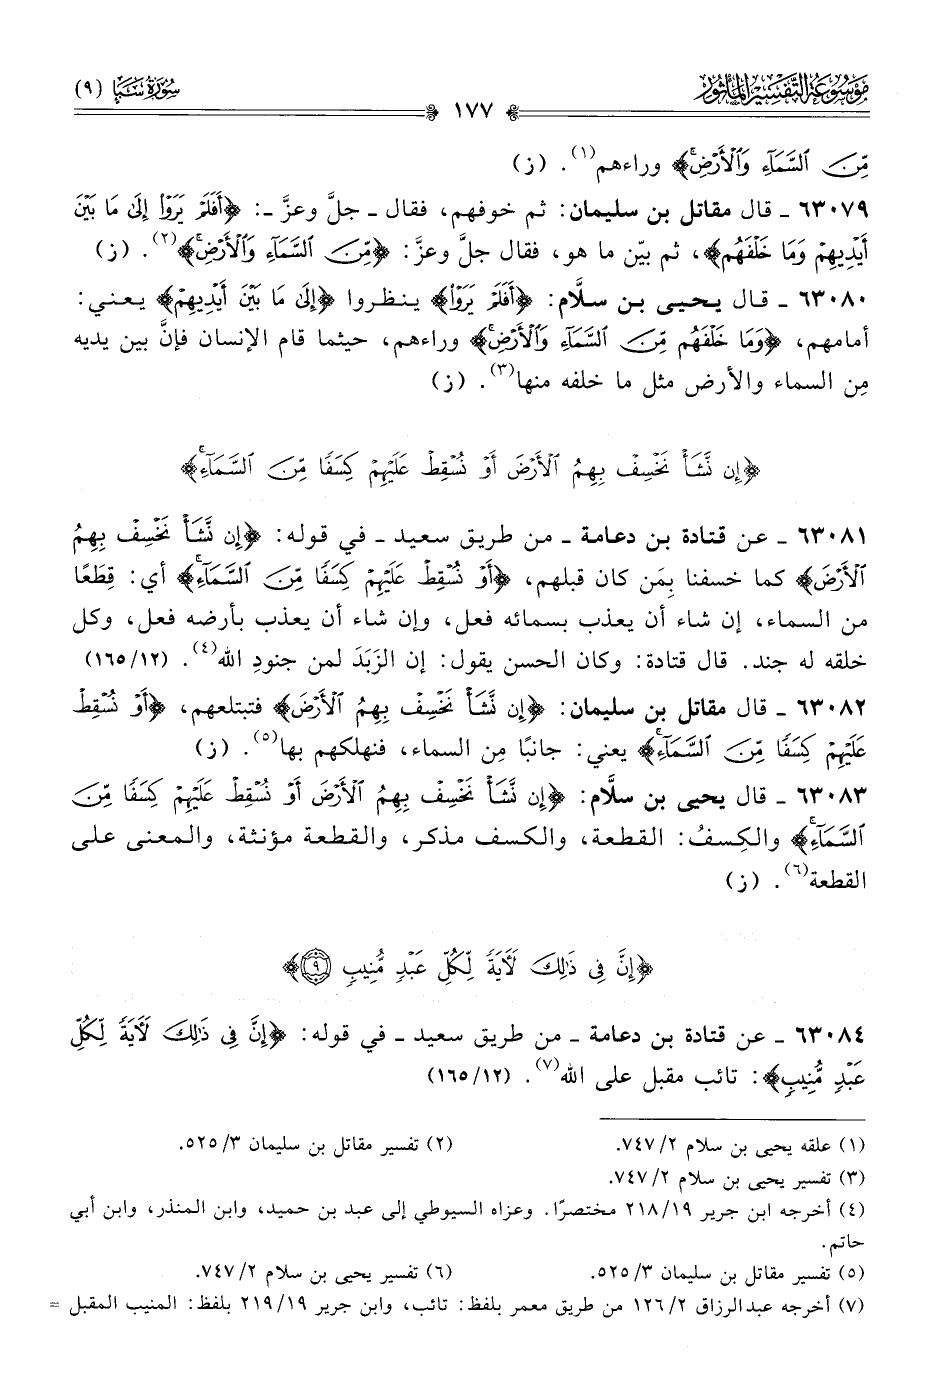 مَوْسُوعَةُ التَّفْسِيرِ المَأْثُورِ
١٧٧
سُورَةُ سَبَإٍ (٩)
مِّنَ ٱلسَّمَآءِ وَٱلْأَرْضِۚ﴾ وراءهم(١). (ز)
٦٣٠٧٩ ـ قال مقاتل بن سليمان: ثم خوفهم، فقال ـ جلَّ وعزَّ ـ: ﴿أَفَلَمْ يَرَوْا۟ إِلَىٰ مَا بَيْنَ
أَيْدِيهِمْ وَمَا خَلْفَهُم﴾، ثم بيّن ما هو، فقال جلَّ وعزَّ: ﴿مِّنَ ٱلسَّمَآءِ وَٱلْأَرْضِۚ﴾(٢). (ز)
٦٣٠٨٠ ـ قال يحيى بن سلَّام: ﴿أَفَلَمْ يَرَوْا۟﴾ ينظروا ﴿إِلَىٰ مَا بَيْنَ أَيْدِيهِمْ﴾ يعني:
أمامهم، ﴿وَمَا خَلْفَهُم مِّنَ ٱلسَّمَآءِ وَٱلْأَرْضِۚ﴾ وراءهم، حيثما قام الإنسان فإنَّ بين يديه
مِن السماء والأرض مثل ما خلفه منها(٣). (ز)
﴿إِن نَّشَأْ نَخْسِفْ بِهِمُ ٱلْأَرْضَ أَوْ نُسْقِطْ عَلَيْهِمْ كِسَفًا مِّنَ ٱلسَّمَآءِۚ﴾
٦٣٠٨١ ـ عن قتادة بن دعامة ـ من طريق سعيد ـ في قوله: ﴿إِن نَّشَأْ نَخْسِفْ بِهِمُ
ٱلْأَرْضَ﴾ كما خسفنا بِمَن كان قبلهم، ﴿أَوْ نُسْقِطْ عَلَيْهِمْ كِسَفًا مِّنَ ٱلسَّمَآءِۚ﴾ أي: قِطَعًا
من السماء، إن شاء أن يعذب بسمائه فعل، وإن شاء أن يعذب بأرضه فعل، وكل
خلقه له جند. قال قتادة: وكان الحسن يقول: إن الزَبَدَ لمن جنودِ الله(٤). (١٦٥/١٢)
٦٣٠٨٢ ـ قال مقاتل بن سليمان: ﴿إِن نَّشَأْ نَخْسِفْ بِهِمُ ٱلْأَرْضَ﴾ فتبتلعهم، ﴿أَوْ نُسْقِطْ
عَلَيْهِمْ كِسَفًا مِّنَ ٱلسَّمَآءِۚ﴾ يعني: جانبًا مِن السماء، فنهلكهم بها(٥). (ز)
٦٣٠٨٣ ـ قال يحيى بن سلَّام: ﴿إِن نَّشَأْ نَخْسِفْ بِهِمُ ٱلْأَرْضَ أَوْ نُسْقِطْ عَلَيْهِمْ كِسَفًا مِّنَ
ٱلسَّمَآءِۚ﴾ والكِسفُ: القطعة، والكسف مذكر، والقطعة مؤنثة، والمعنى على
القطعة(٦). (ز)
﴿إِنَّ فِى ذَٰلِكَ لَءَايَةً لِّكُلِّ عَبْدٍ مُّنِيبٍ ٩﴾
٦٣٠٨٤ ـ عن قتادة بن دعامة ـ من طريق سعيد ـ في قوله: ﴿إِنَّ فِى ذَٰلِكَ لَءَايَةً لِّكُلِّ
عَبْدٍ مُّنِيبٍ﴾: تائب مقبل على الله(٧). (١٦٥/١٢)
(١) علقه يحيى بن سلام ٧٤٧/٢.
(٢) تفسير مقاتل بن سليمان ٥٢٥/٣.
(٣) تفسير يحيى بن سلام ٧٤٧/٢.
(٤) أخرجه ابن جرير ٢١٨/١٩ مختصرًا. وعزاه السيوطي إلى عبد بن حميد، وابن المنذر، وابن أبي
حاتم.
(٥) تفسير مقاتل بن سليمان ٥٢٥/٣.
(٦) تفسير يحيى بن سلام ٧٤٧/٢.
(٧) أخرجه عبدالرزاق ١٢٦/٢ من طريق معمر بلفظ: تائب، وابن جرير ٢١٩/١٩ بلفظ: المنيب المقبل =